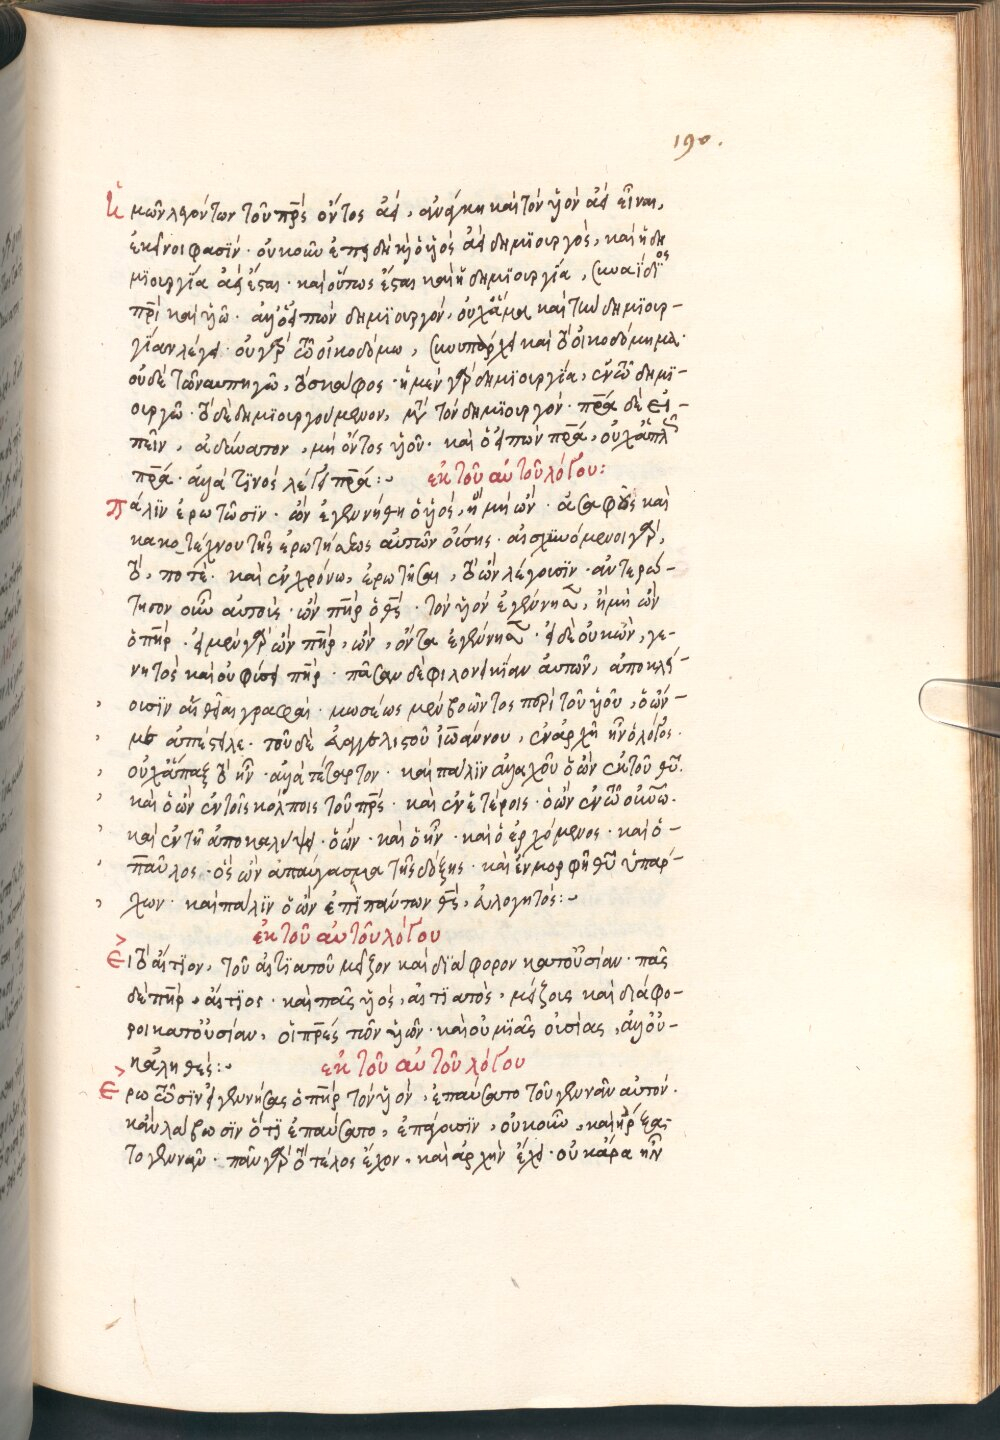 190.
ἡμῶν λεγόντων τοῦ πρ̅ς ὄντος ἀεὶ, ἀνάγκη καὶ τὸν υἱὸν ἀεὶ εἶναι,
ἐκεῖνοι φασϊν· οὐκοῦν ἐπειδὴ καὶ ὁ υἱὸς ἀεὶ δημϊουργὸς, καὶ ἡ δη
μϊουργία ἀεὶ ἔσται· καὶ οὕτως ἔσται καὶ ἡ δημϊουργία, συναΐδϊος
πρ̅ὶ καὶ υἱῶ· ἀλλ' ὁ εἰπὼν δημϊουργὸν, οὐχ ἅμα καὶ τὴν δημϊουρ-
γίαν λέγει· οὐ γὰρ τῶ οἰκοδόμω, συνυπάρχει καὶ τὸ οἰκοδόμημα·
οὐδὲ τῶ ναυπηγῶ, τὸ σκάφος· ἡ μὲν γὰρ δημϊουργία, ἐν τῶ δημϊ-
ουργῶ· τὸ δὲ δημϊουργούμενον, μετὰ τὸν δημϊουργόν· πρ̅α δὲ εἰ-
πεῖν, ἀδύνατον, μὴ ὄντος υἱοῦ· καὶ ὁ εἰπὼν πρ̅α, οὐχ ἁπλῶς
πρ̅α· ἀλλὰ τϊνὸς λέγει πρ̅α:~ ἐκ τοῦ αὐτοῦ λόγου:
Πάλϊν ἐρωτῶσϊν· ὢν ἐγεννήθη ὁ υἱὸς, ἢ μὴ ὤν· ἀσαφοῦς καὶ
κακοτέχνου τῆς ἐρωτήσεως αὐτῶν οὔσης· αἰσχυνόμενοι γὰρ,
τὸ, ποτὲ· καὶ ἐν χρόνω, ἐρωτῆσαι, τὸ ὢν λέγουσϊν· ἀντερώ-
τησον οὖν αὐτοὺς· ὢν πη̅ρ ὁ θς̅· τὸν υἱὸν ἐγέννησεν, ἢ μὴ ὢν
ὁ πη̅ρ· εἰ μὲν γὰρ ὢν πη̅ρ, ὢν, ὄντα ἐγέννησεν· εἰ δὲ οὐκ ὢν, γε-
νητὸς καὶ οὐ φύσει πη̅ρ· πᾶσαν δὲ φιλονεικίαν αὐτῶν, ἀποκλεί-
ουσϊν αἱ θεῖαι γραφαὶ· μωσέως μὲν βοῶντος περὶ τοῦ υἱοῦ, ὁ ὢν-
με ἀπέστειλε· τοῦ δὲ εὐαγγελιστοῦ ἰωάννου, ἐν ἀρχῇ ἦν ὁ λόγος·
οὐχ ἅπαξ τὸ ἦν· ἀλλὰ τέταρτον· καὶ πάλϊν ἀλλαχοῦ ὁ ὢν ἐκ τοῦ θυ̅.
καὶ ὁ ὢν ἐν τοῖς κόλποις τοῦ πρ̅ς· καὶ ἐν ἑτέροις· ὁ ὢν ἐν τῶ οὐνῶ·
καὶ ἐν τῇ ἀποκαλύψει· ὁ ὢν· καὶ ὁ ἦν· καὶ ὁ ἐρχόμενος· καὶ ὁ-
παῦλος· ὃς ὢν ἀπαύγασμα τῆς δόξης· καὶ ἐν μορφῇ θυ̅ ὑπάρ-
χων· καὶ πάλϊν ὁ ὢν ἐπὶ πάντων θς̅, εὐλογητός:~
ἐκ τοῦ αὐτοῦ λόγου
Εἰ τὸ αἴτϊον, τοῦ αἰτϊατοῦ μεῖζον καὶ δϊάφορον κατ' οὐσίαν· πᾶς
δὲ πη̅ρ, αἴτϊος· καὶ πᾶς υἱὸς, αἰτϊατὸς, μείζους καὶ διάφο-
ροι κατ' οὐσίαν, οἱ πρ̅ες τῶν υἱῶν· καὶ οὐ μϊᾶς οὐσίας, ἀλλ' οὐ-
κ ἀληθές:~ ἐκ τοῦ αὐτοῦ λόγου
Ἐρωτῶσϊν εἰ γεννήσας ὁ πη̅ρ τὸν υἱὸν, ἐπαύσατο τοῦ γεννᾶν αὐτόν·
κἂν λάβωσϊν ὅτϊ ἐπαύσατο, ἐπάγουσϊν, οὐκοῦν, καὶ ἤρξα-
το γεννᾶν· πᾶν γὰρ τὸ τέλος ἔχον, καὶ ἀρχὴν ἔχει· οὐκ ἄρα ἦν